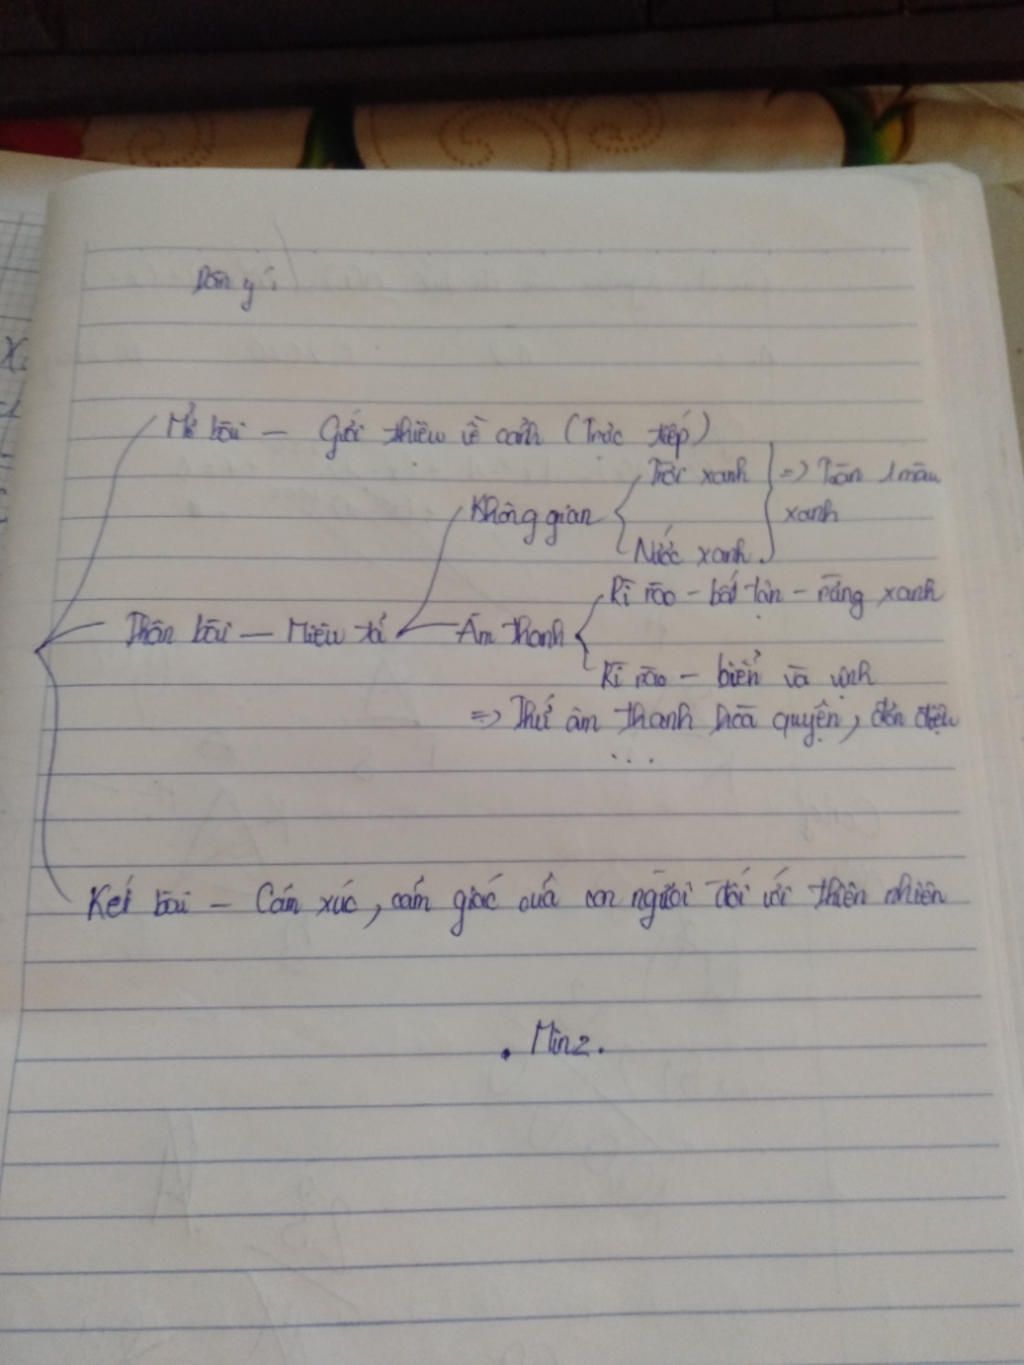 Dàn ý:
Mở bài - Giới thiệu về cảnh (Trực tiếp)
Trời xanh => Toàn 1 màu
Không gian xanh
Nước xanh
Rì rào - bất tận - rặng xanh
Thân bài - Miêu tả Âm thanh
Rì rào - biển và vịnh
=> Thứ âm thanh hoà quyện, đơn điệu
...
Kết bài - Cảm xúc, cảm giác của con người đối với thiên nhiên
. Minz.